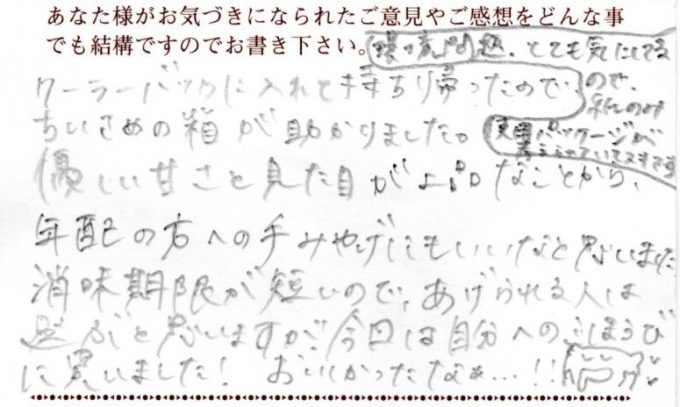 あなた様がお気づきになられたご意見やご感想をどんな事
でも結構ですのでお書き下さい。
環境問題、とても気にしてる
ので、
紙のみ
パッージが
ステキです
クーラーバックに入れて持ち帰ったので、
ちいさめの箱が助かりました。
優しい甘さと見た目が上品なことから、
年配の方への手みやげにもいいなと思いました
消味期限が短いので、あげられる人は
思いますが、今回は自分へのごほうび
に買いました! おいしかったなぁ…!!